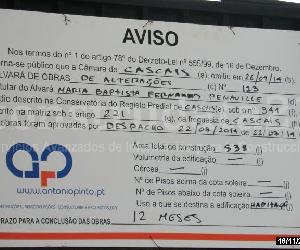 AVISO
Nos termos do nº 1 do artigo 78º do Decreto-Lei nº 555/99, de 16 de Dezembro,
torna-se público que a Câmara de CASCAIS (a), emitiu em 26/09/14 (b),
ALVARÁ DE OBRAS DE ALTERAÇÕES (c) Nº 123
titular do Alvará MARIA BAPTISTA FERNANDES
descrito na Conservatória do Registo Predial de CASCAIS (e), sob o nº 941
inscrito na matriz sob o artigo 221 (g), da freguesia de CASCAIS
obras foram aprovadas por DESPACHO 22/08/2014
Área total de construção 538 (i)
Volumetria da edificação (j)
Cércea (j)
Nº de Pisos acima da cota soleira (j)
Nº de Pisos abaixo da cota soleira
Uso a que se destina a edificação
www.antoniopinto.pt
PRAZO PARA A CONCLUSÃO DAS OBRAS 12 MESES
16/11/